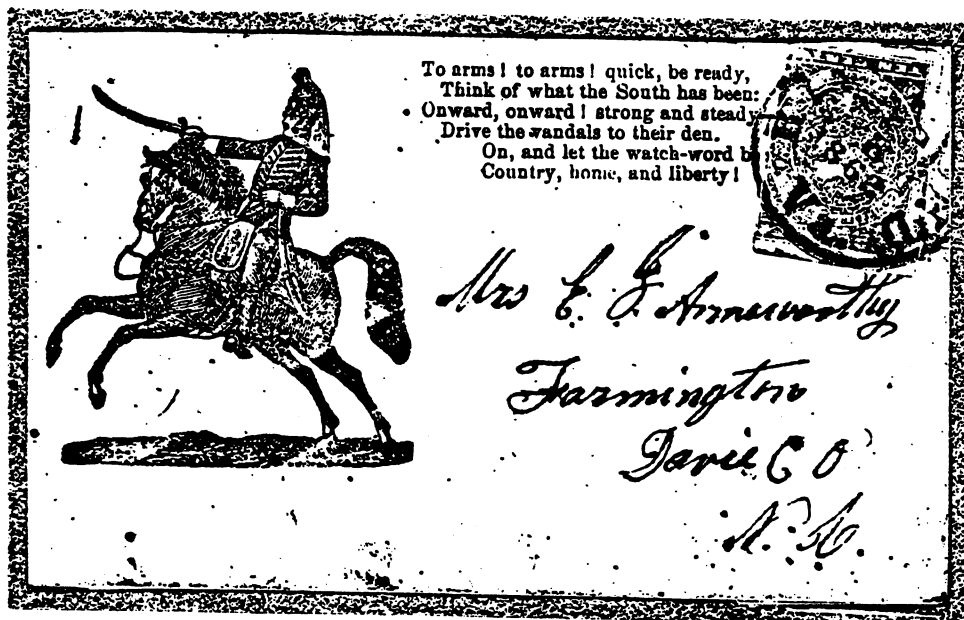 To arms! to arms! quick, be ready,
Think of what the South has been:
Onward, onward! strong and steady
Drive the vandals to their den.
On, and let the watch-word b
Country, home, and liberty!
Mrs E. G. Armsworthy
Farmington
Davie C O
N. C.